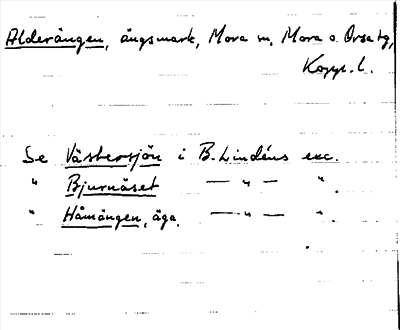 Alderängen, ängsmark, Mora sn, Mora o. Orsa tg,
Kopp. l.
Se Västersjön i B. Lindéns exc.
" Bjurnäset — " — " .
" Håmängen, äga. — " — " .